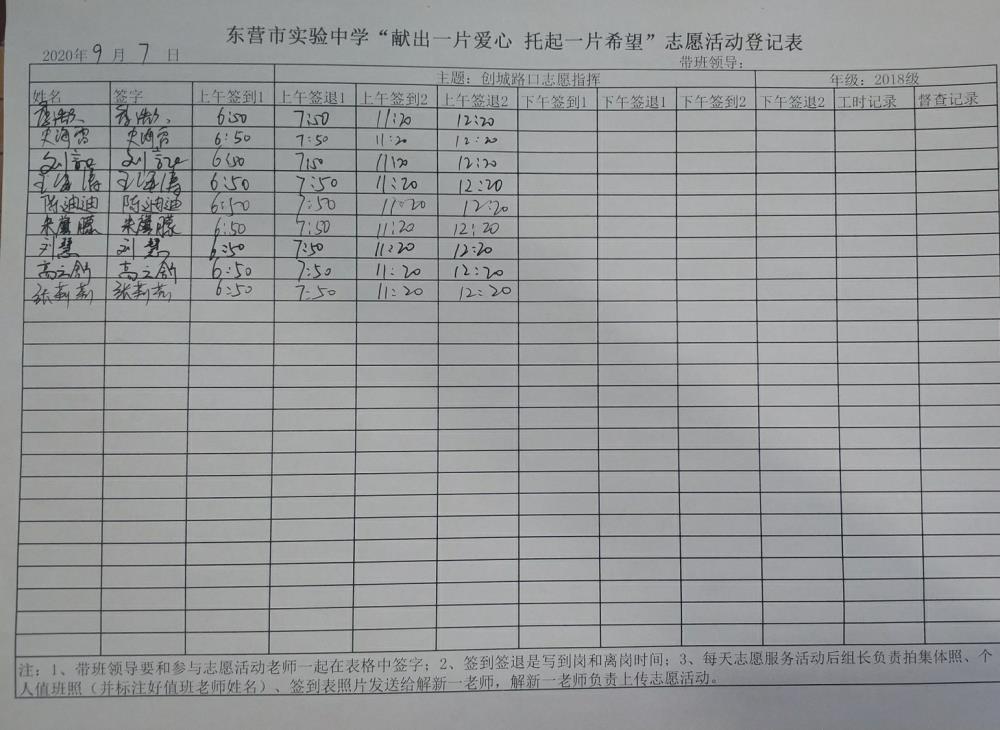 东营市实验中学“献出一片爱心 托起一片希望”志愿活动登记表
2020年9月7日 带班领导：
主题：创城路口志愿指挥 年级：2018级
姓名 签字 上午签到1 上午签退1 上午签到2 上午签退2 下午签到1 下午签退1 下午签到2 下午签退2 工时记录 督查记录
6:50 7:50 11:20 12:20
史海雷 史海雷 6:50 7:50 11:20 12:20
6:50 7:50 11:20 12:20
6:50 7:50 11:20 12:20
陈迪迪 陈迪迪 6:50 7:50 11:20 12:20
朱麒朦 朱麒朦 6:50 7:50 11:20 12:20
刘慧 刘慧 6:50 7:50 11:20 12:20
高立舒 高立舒 6:50 7:50 11:20 12:20
张莉莉 张莉莉 6:50 7:50 11:20 12:20
注：1、带班领导要和参与志愿活动老师一起在表格中签字；2、签到签退是写到岗和离岗时间；3、每天志愿服务活动后组长负责拍集体照、个
人值班照（并标注好值班老师姓名）、签到表照片发送给解新一老师，解新一老师负责上传志愿活动。